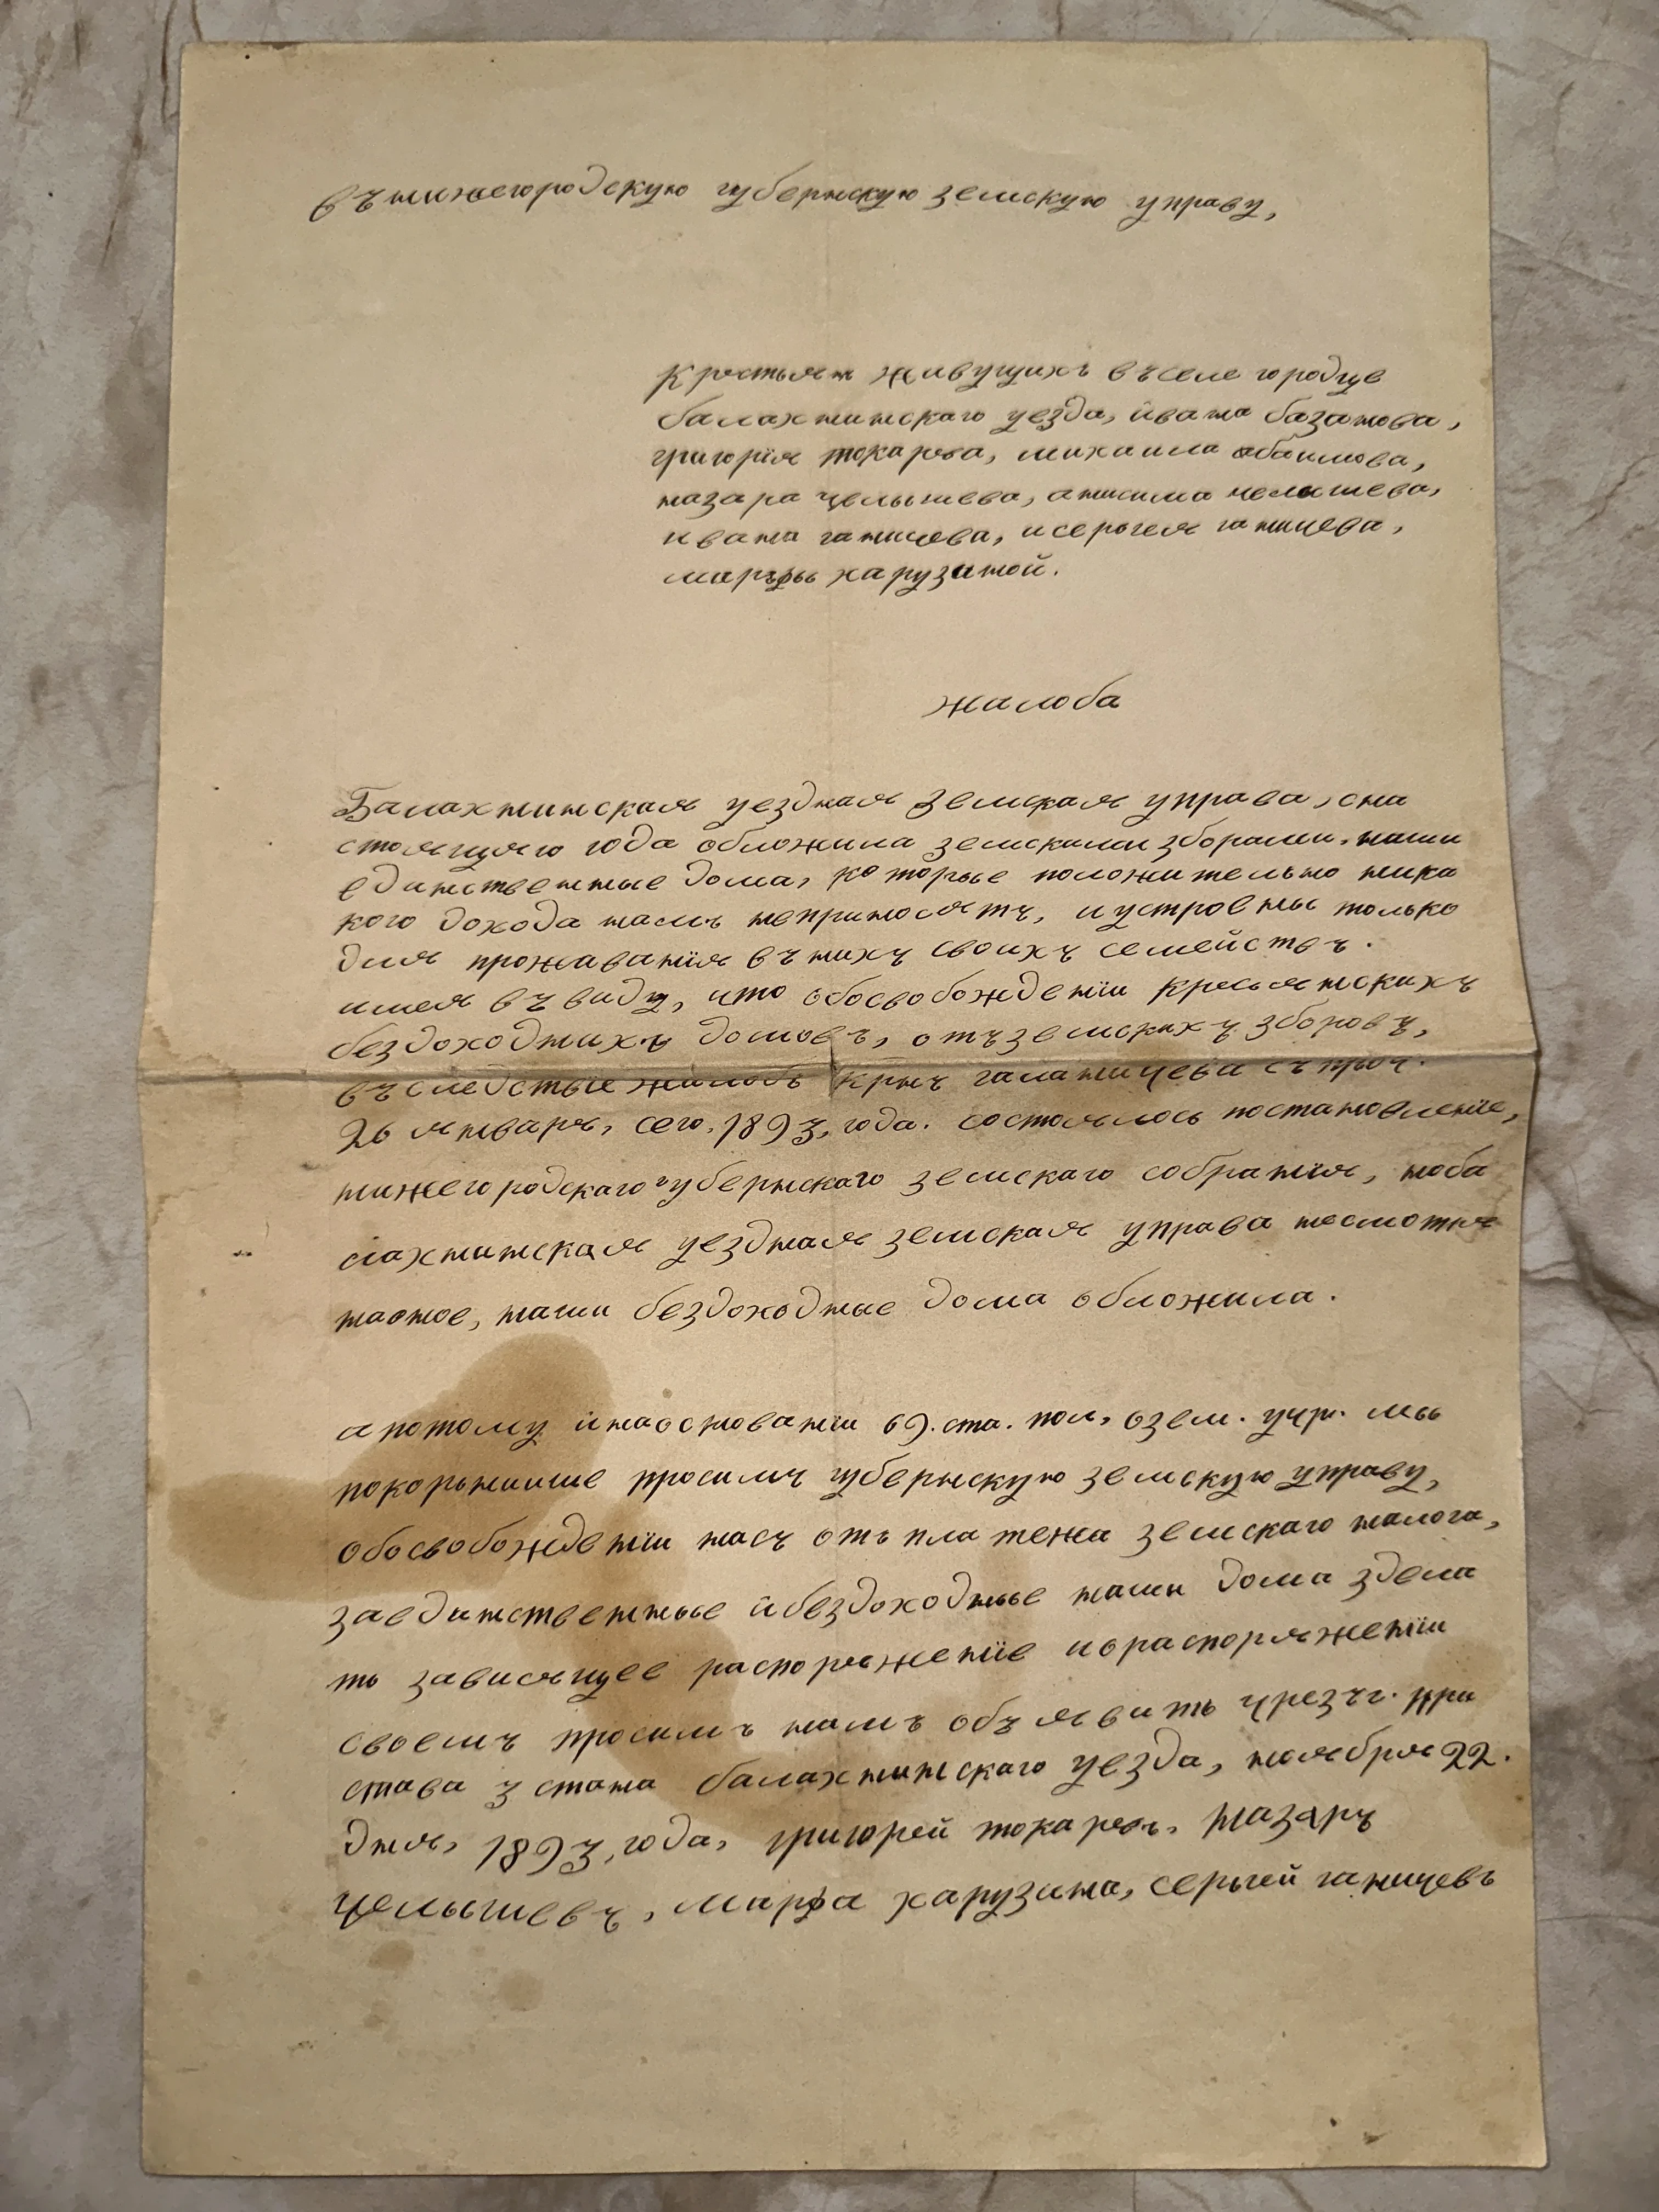 въ нижегородскую губернскую земскую управу,
крестьян живущихъ въ селе городце
балахнинскаго уезда, ивана базанова,
григорiя токарева, михаила абаимова,
назара целышева, анисима челышева,
ивана ганичева, и серьгея ганичева,
маръфы харузиной.
жалоба
Балахнинская уездная земская управа, сна
стоящяго года обложила земскими зборами, наши
единственные дома, которые положительно ника
кого дохода намъ неприносятъ, и устроены только
для проживанiя въ нихъ своихъ семействъ.
имея въ виду, что обосвобожденiи кресьянскихъ
бездоходныхъ домовъ, отъ земскихъ зборовъ,
въследствие жалобъ крнъ галаничева съ проч.
26 января, сего, 1893, года. состоялось постановленiе,
нижегородскаго губернскаго земскаго собранiя, ноба
лахнинская уездная земская управа несмотря
наоное, наши бездоходные дома обложила.
а потому и наоснованiи 69. ста. пол, озем. учр. мы
покорьниише просимъ губернскую земскую управу,
обосвобожденiи насъ отъ платежа земскаго налога,
заединственные и бездоходные наши дома здела
ть зависящее распоряженiе и о распоряженiи
своемъ просимъ намъ объявить чрезъ г. при
става 3 стана балахнинскаго уезда, ноября 22.
дня, 1893, года, григорей токаревъ, назаръ
целышевъ, марфа харузина, серьгей ганичевъ